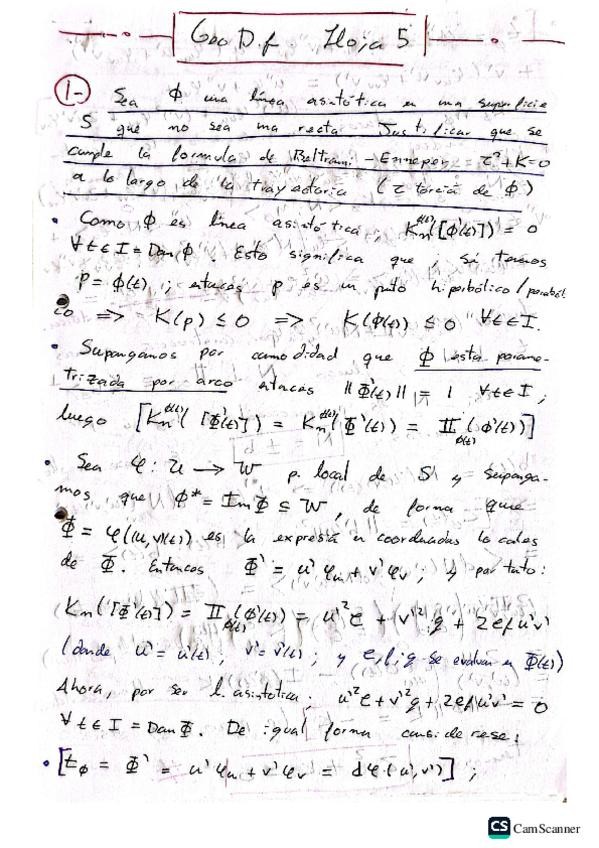 Geo Dif Hoja 5
1- Sea Φ una línea asintótica en una superficie
S que no sea una recta. Justificar que se
cumple la formula de Beltrami-Enneper = τ² + K = 0
a lo largo de la trayectoria (τ torsión de Φ)
• Como Φ es línea asintótica, Kn^Φ(t)([Φ'(t)]) = 0
∀t∈I = Dom Φ. Esto significa que, si tomamos
p = Φ(t), entonces p es un punto hiperbólico/parabóli
co ⟹ K(p) ≤ 0 ⟹ K(Φ(t)) ≤ 0 ∀t∈I.
• Supongamos por comodidad que Φ esta parame-
trizada por arco entonces ||Φ'(t)|| = 1 ∀t∈I,
luego [Kn^Φ(t)([Φ'(t)]) = Kn^Φ(t)(Φ'(t)) = II_Φ(t)(Φ'(t))]
• Sea φ: U → W p. local de S y Suponga-
mos que Φ* = Im Φ ⊆ W, de forma que
Φ = φ(u(t), v(t)) es la expresión en coordenadas locales
de Φ. Entonces Φ' = u'φu + v'φv; y por tanto:
Kn([Φ'(t)]) = II_Φ(t)(Φ'(t)) = u'²e + v'²g + 2fu'v'
(donde u' = u'(t), v' = v'(t); y e, f, g se evaluan en Φ(t))
Ahora, por ser l. asintótica: u'²e + v'²g + 2fu'v' = 0
∀t∈I = Dom Φ. De igual forma considerese:
• [tΦ = Φ' = u'φu + v'φv = dφ(u', v')];
CS CamScanner